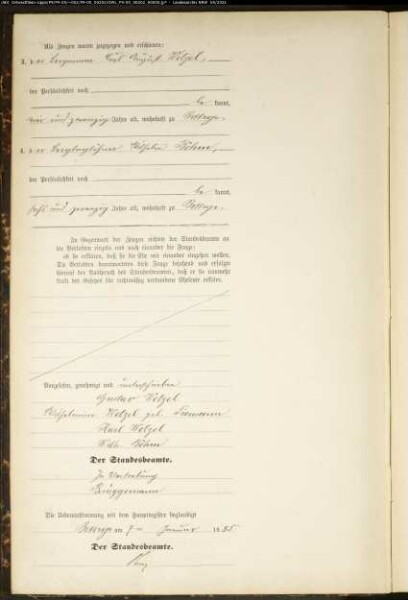 Als Zeugen waren zugezogen und erschienen:
3. der Bergmann Karl August Welzel,
der Persönlichkeit nach
be kannt,
und zwanzig Jahre alt, wohnhaft zu Bottrop.
4. der Wilhelm Böhm,
der Persönlichkeit nach
be kannt,
und zwanzig Jahre alt, wohnhaft zu Bottrop.
In Gegenwart der Zeugen richtete der Standesbeamte an
die Verlobten einzeln und nach einander die Frage:
ob sie erklären, daß sie die Ehe mit einander eingehen wollen.
Die Verlobten beantworteten diese Frage bejahend und erfolgte
hierauf der Ausspruch des Standesbeamten, daß er sie nunmehr
kraft des Gesetzes für rechtmäßig verbundene Eheleute erkläre.
Vorgelesen, genehmigt und unterschrieben
Gustav Welzel
Wilhelmine Welzel geb.
Karl Welzel
Wilh. Böhm
Der Standesbeamte.
In Vertretung
Brüggemann
Die Uebereinstimmung mit dem Hauptregister beglaubigt
Bottrop am 7ten Januar 18
Der Standesbeamte.